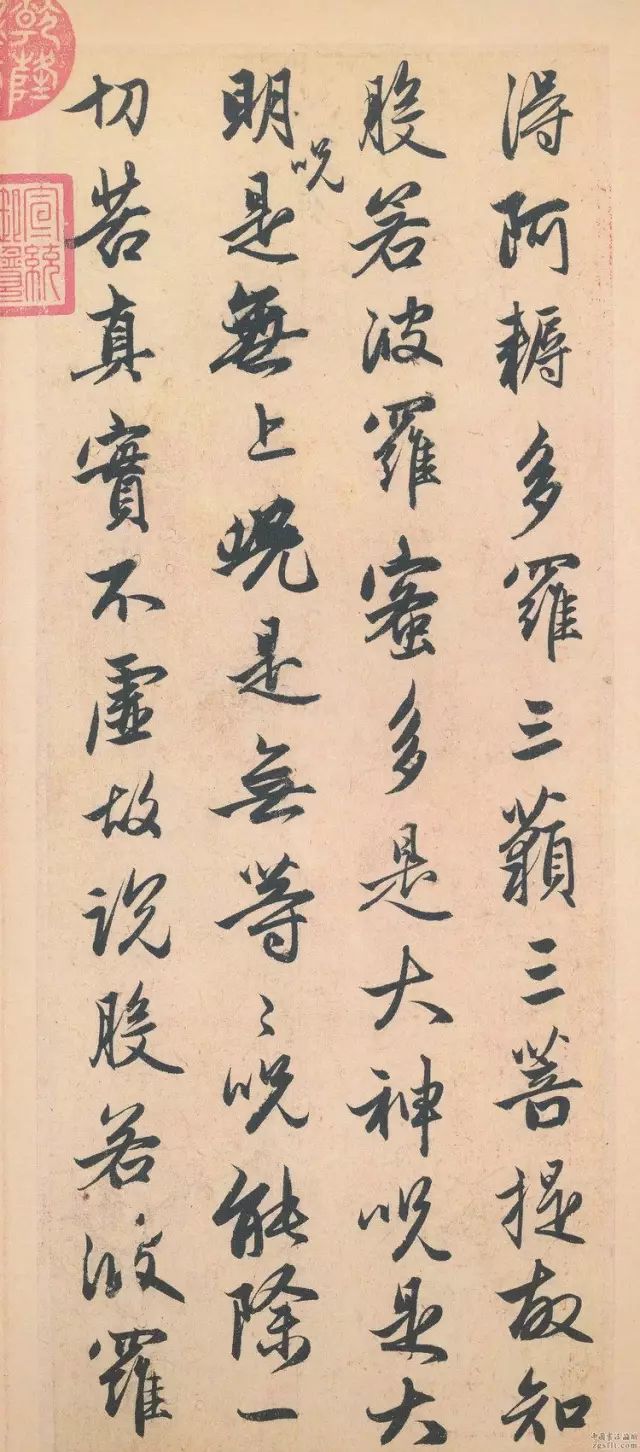 得阿耨多羅三藐三菩提故知
般若波羅蜜多是大神呪是大
明呪是無上呪是無等〻呪能除一
切苦真實不虛故說般若波羅
乾隆
宣統
中國書法論壇
zgsflt.com